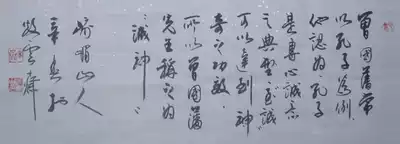 曾国藩常
以孔子为例
他认为孔子
是专心诚意
之典型至诚
可以达到神
奇之功效
所以曾国藩
先生称之为
诚神
山人
辛
牧云